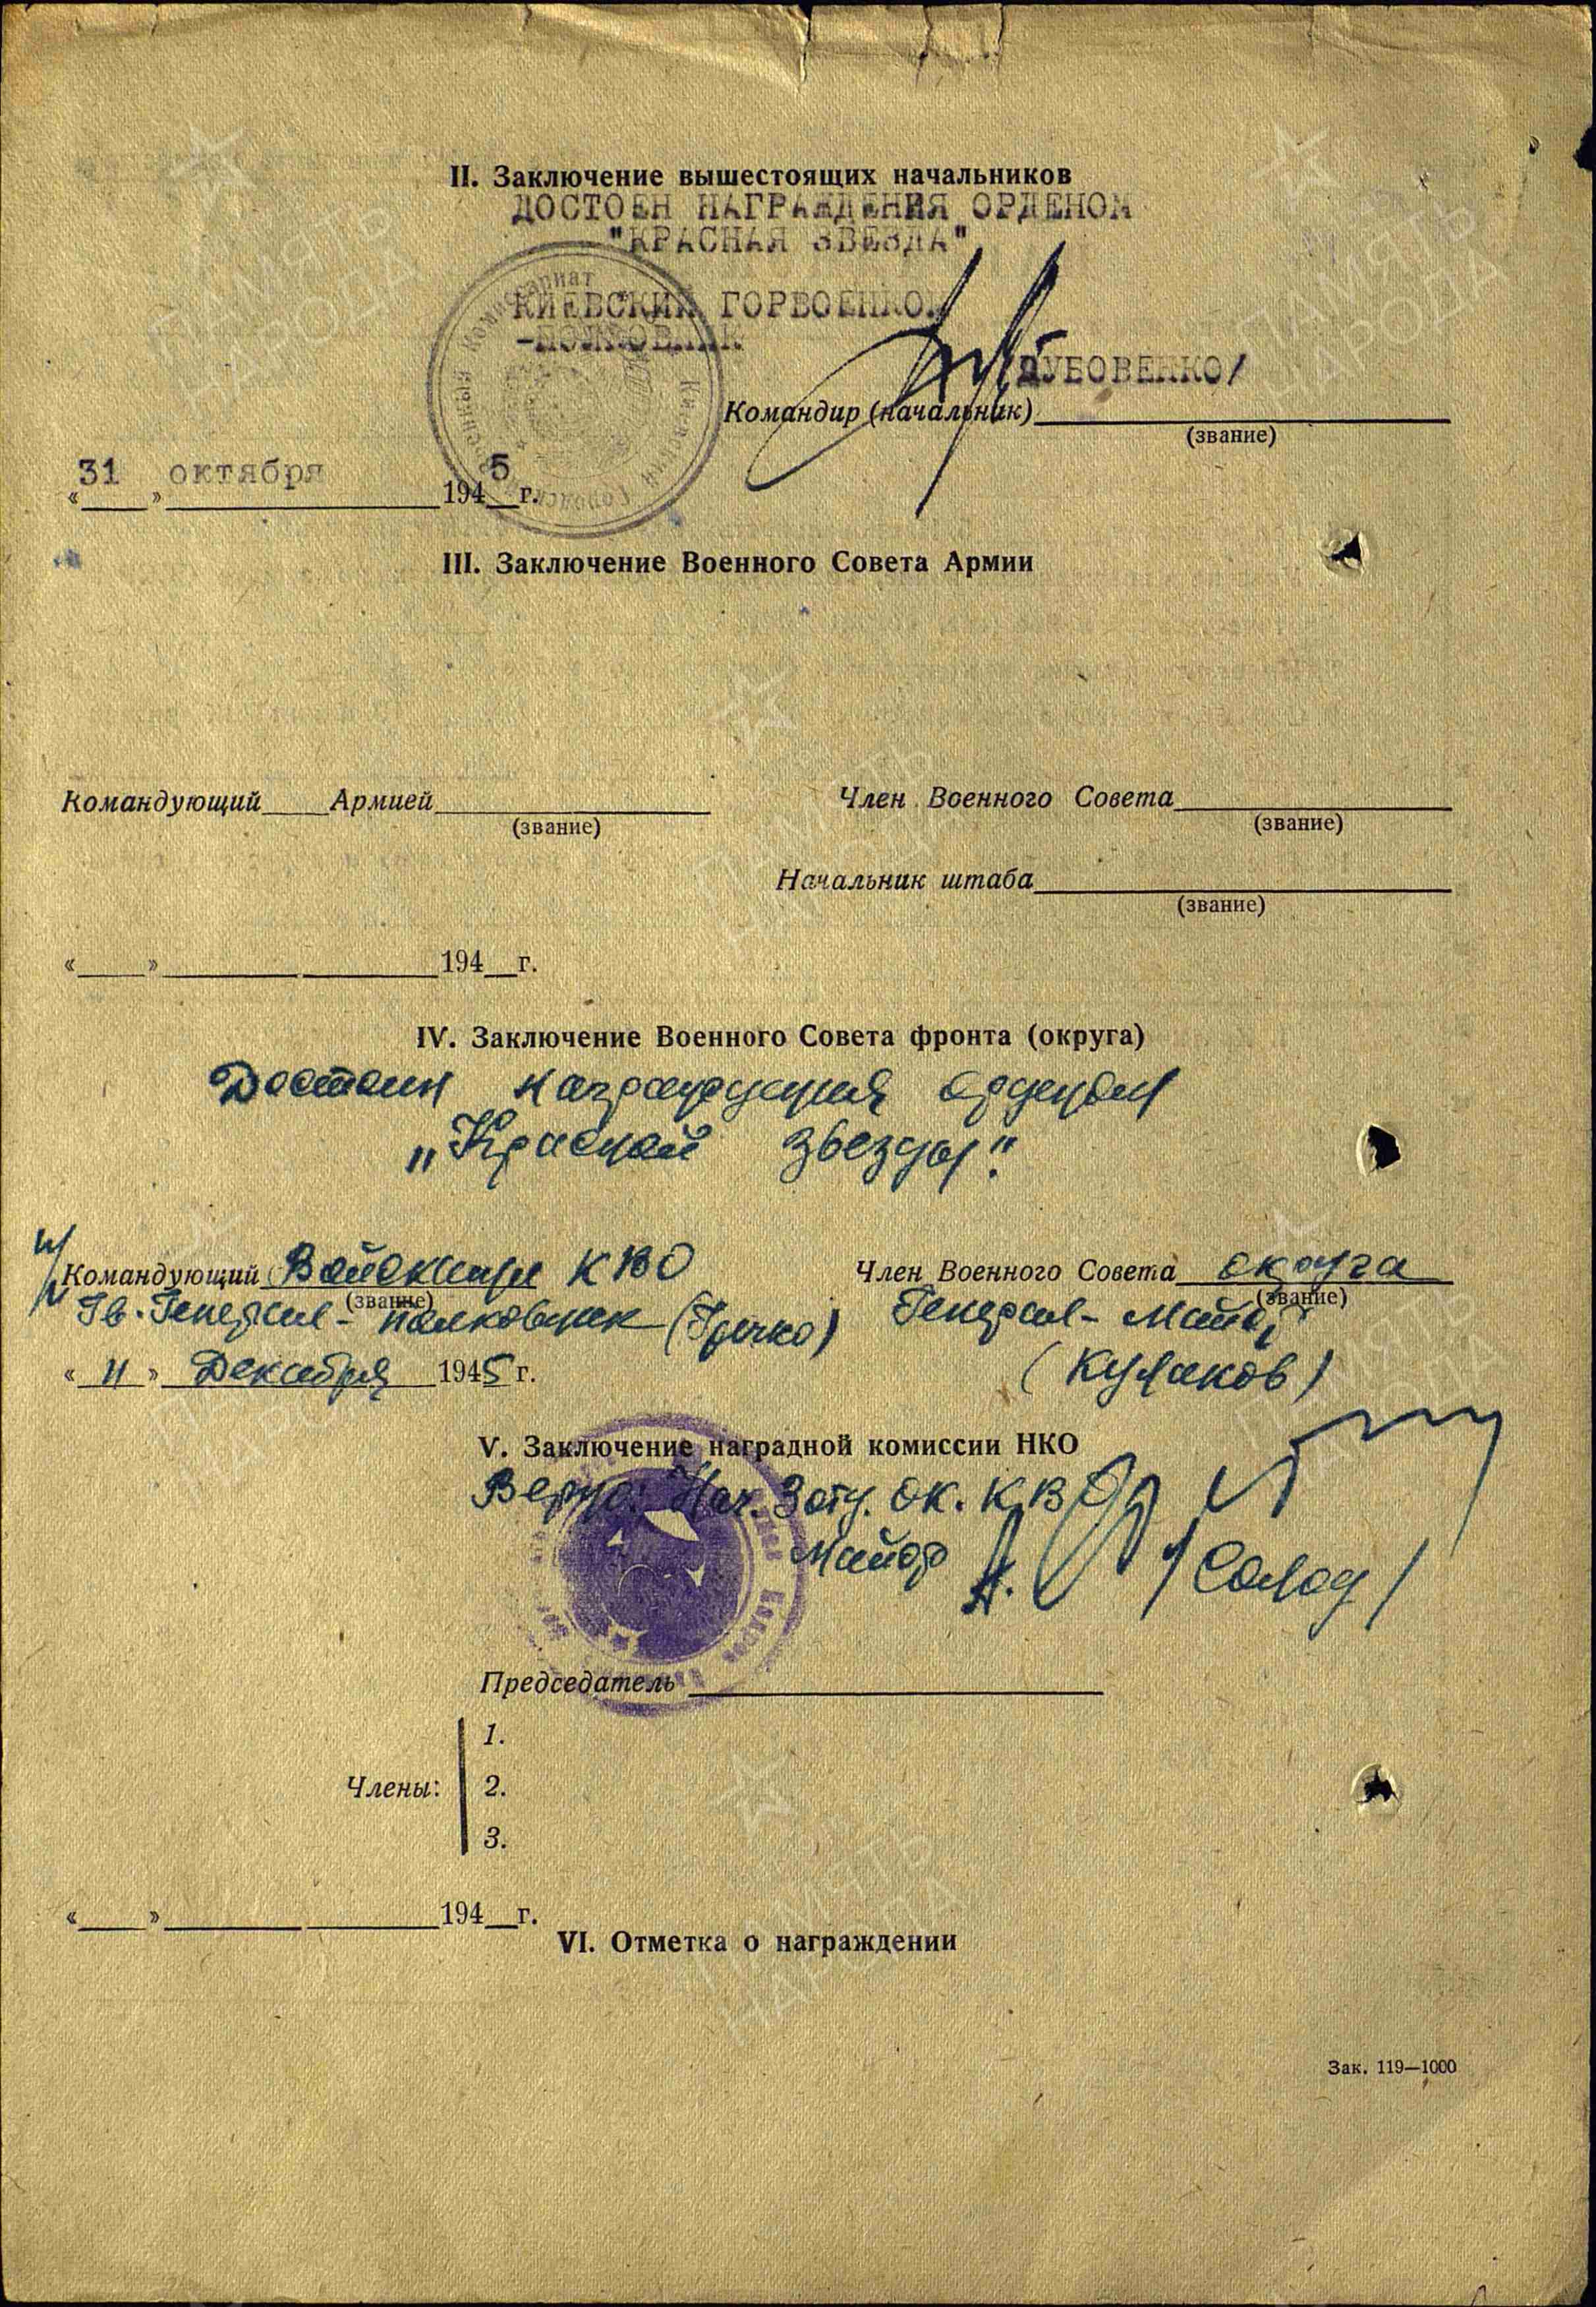 II. Заключение вышестоящих начальников
ДОСТОЕН НАГРАЖДЕНИЯ ОРДЕНОМ
"КРАСНАЯ ЗВЕЗДА"
КИЕВСКИЙ ГОРВОЕНКОМ
-ПОЛКОВНИК
ДУБОВЕНКО/
Командир (начальник)
(звание)
«31» октября 1945 г.
III. Заключение Военного Совета Армии
Командующий Армией
(звание)
Член Военного Совета
(звание)
Начальник штаба
(звание)
« » 194 г.
IV. Заключение Военного Совета фронта (округа)
Достоин награждения орденом
„Красной звезды".
Командующий Войсками КВО
(звание)
Гв. Генерал-полковник (Гречко)
Член Военного Совета округа
(звание)
Генерал-Майор
(Кулаков)
«11» Декабря 1945 г.
V. Заключение наградной комиссии НКО
Верно: Нач. ок. КВО
Майор /Солод/
Председатель
Члены:
1.
2.
3.
« » 194 г.
VI. Отметка о награждении
Зак. 119—1000
ПАМЯТЬ НАРОДА